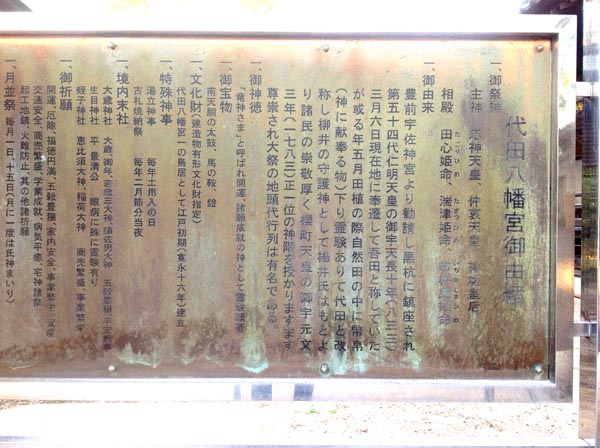 代田八幡宮御由緒
一、御祭神
主神 応神天皇、仲哀天皇、神功皇后
相殿 田心姫命、湍津姫命、
たごりひめ たぎつひめ
一、御由来
豊前宇佐神宮より勧請し黒杭に鎮座され
第五十四代仁明天皇の御宇天長十年(八三三)
三月六日現在地に奉遷して吾田と称していた
が或る年五月田植の際自然田の中に幣帛
(神に献奉る物)下り霊験ありて代田と改
称し柳井の守護神として楊井氏はもとよ
り諸民の崇敬厚く櫻町天皇の御宇元文
三年(一七八三)正一位の神階を授かりますます
尊崇され大祭の地頭代行列は有名である。
一、御神徳
「竜神さま」と呼ばれ開運、諸願成就の神として霊験顕著
一、御宝物
南天胴の太鼓、馬の鞍、鐙
一、文化財(建造物有形文化財指定)
代田八幡宮一の鳥居として江戸初期(寛永十六年)建立
一、特殊神事
湯立神事 毎年土用入の日
古札焼納祭 毎年二月節分当夜
一、境内末社
大歳神社 大歳御年、若歳三大神、須佐男大神 五穀豊穣、
生目神社 平景清公 眼病に殊に霊験有り
蛭子神社 恵比須大神、稲荷大神 商売繁盛、事業繁栄
一、御祈願
開運、厄除、福徳円満、五穀豊穣、家内安全、事業繁栄、安産
交通安全、商売繁盛、学業成就、病気平癒、宅神諸祭
起工地鎮、火難防止、其の他諸祈願
一、月並祭 毎月一日、十五日(月に一度は氏神まいり)